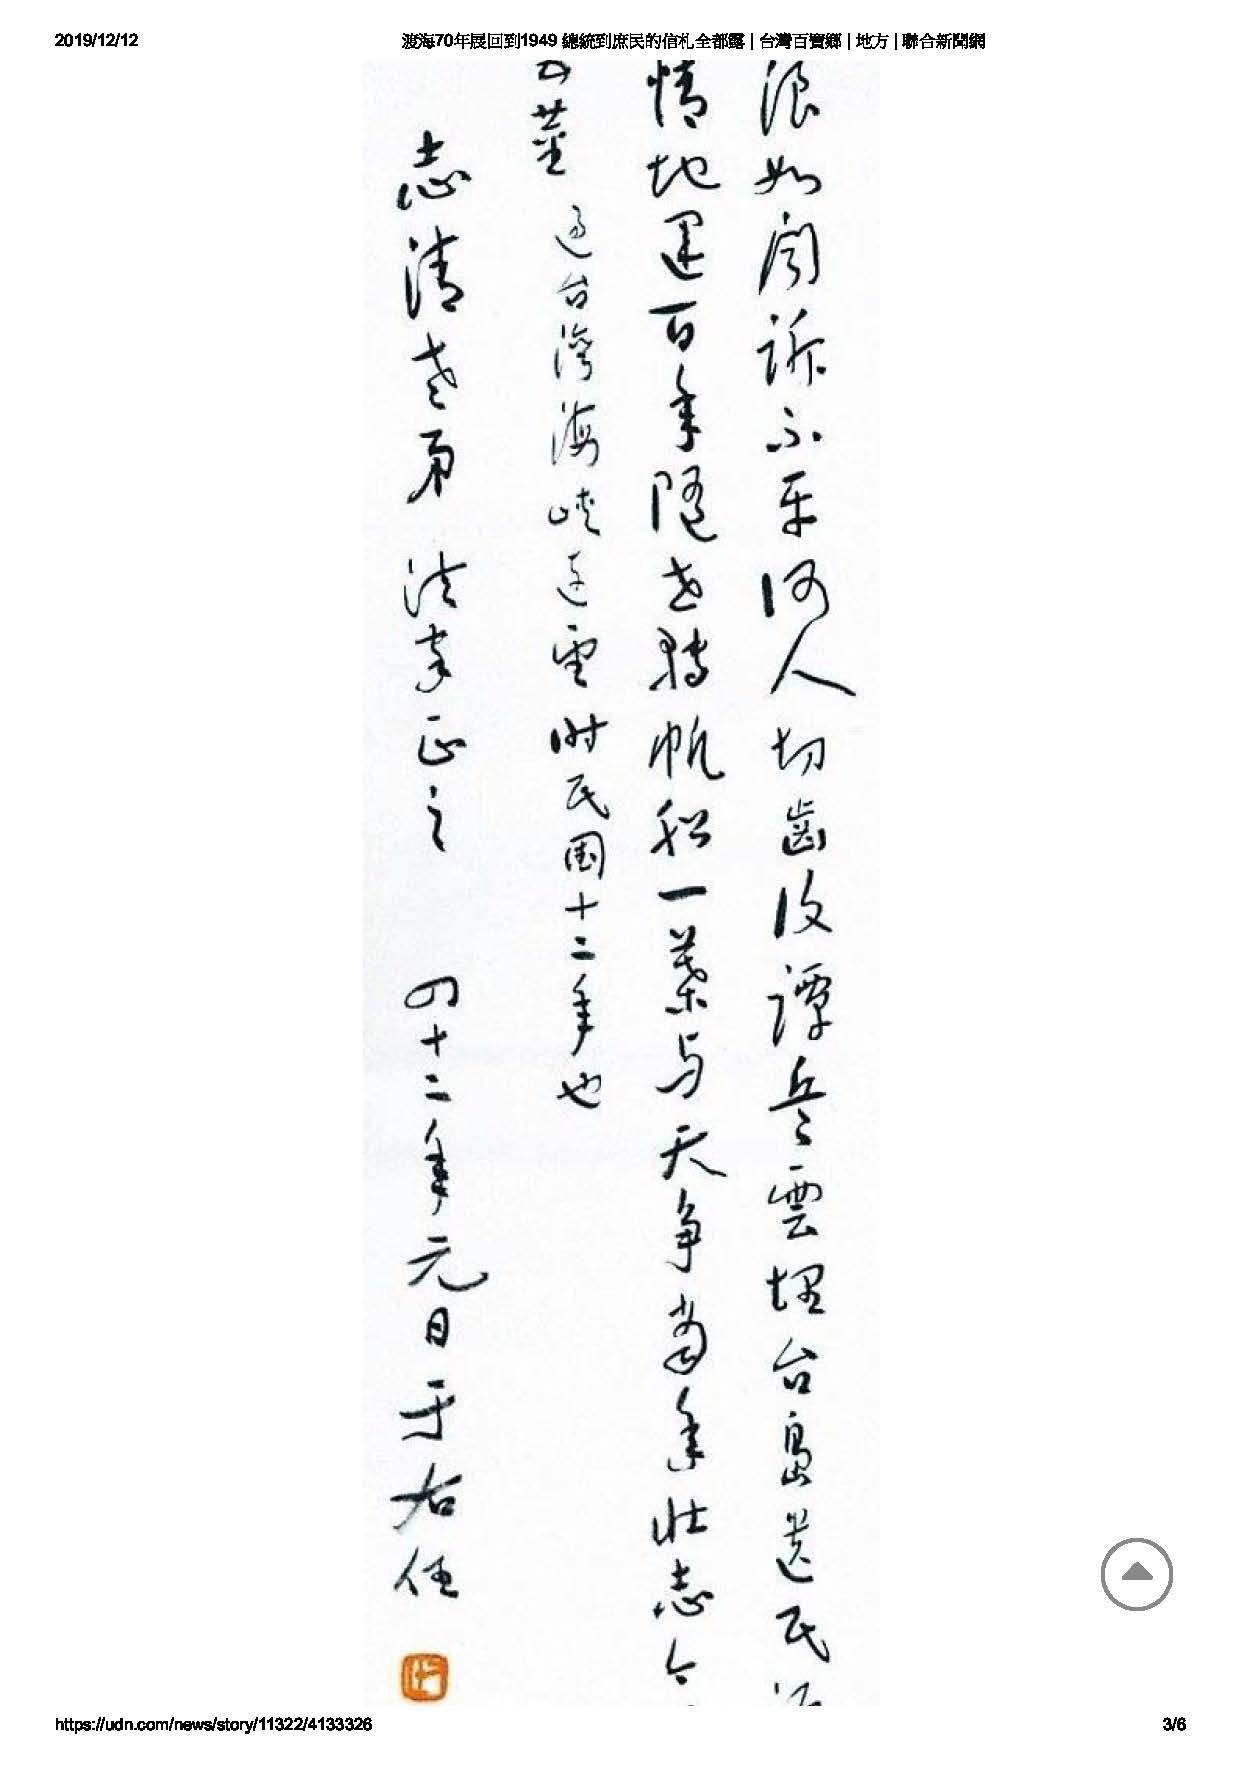 2019/12/12
渡海70年展回到1949 總統到庶民的信札全都露 | 台灣百寶鄉 | 地方 | 聯合新聞網
浪如聞訴不平何人切齒復譚兵雲埋台島遺民
情地運百年隨世轉帆船一葉与天爭當年壯志今
莖 過台灣海峽遠望時民国十二年也
志清老弟 法家正之 四十二年元日于右任
https://udn.com/news/story/11322/4133326
3/6